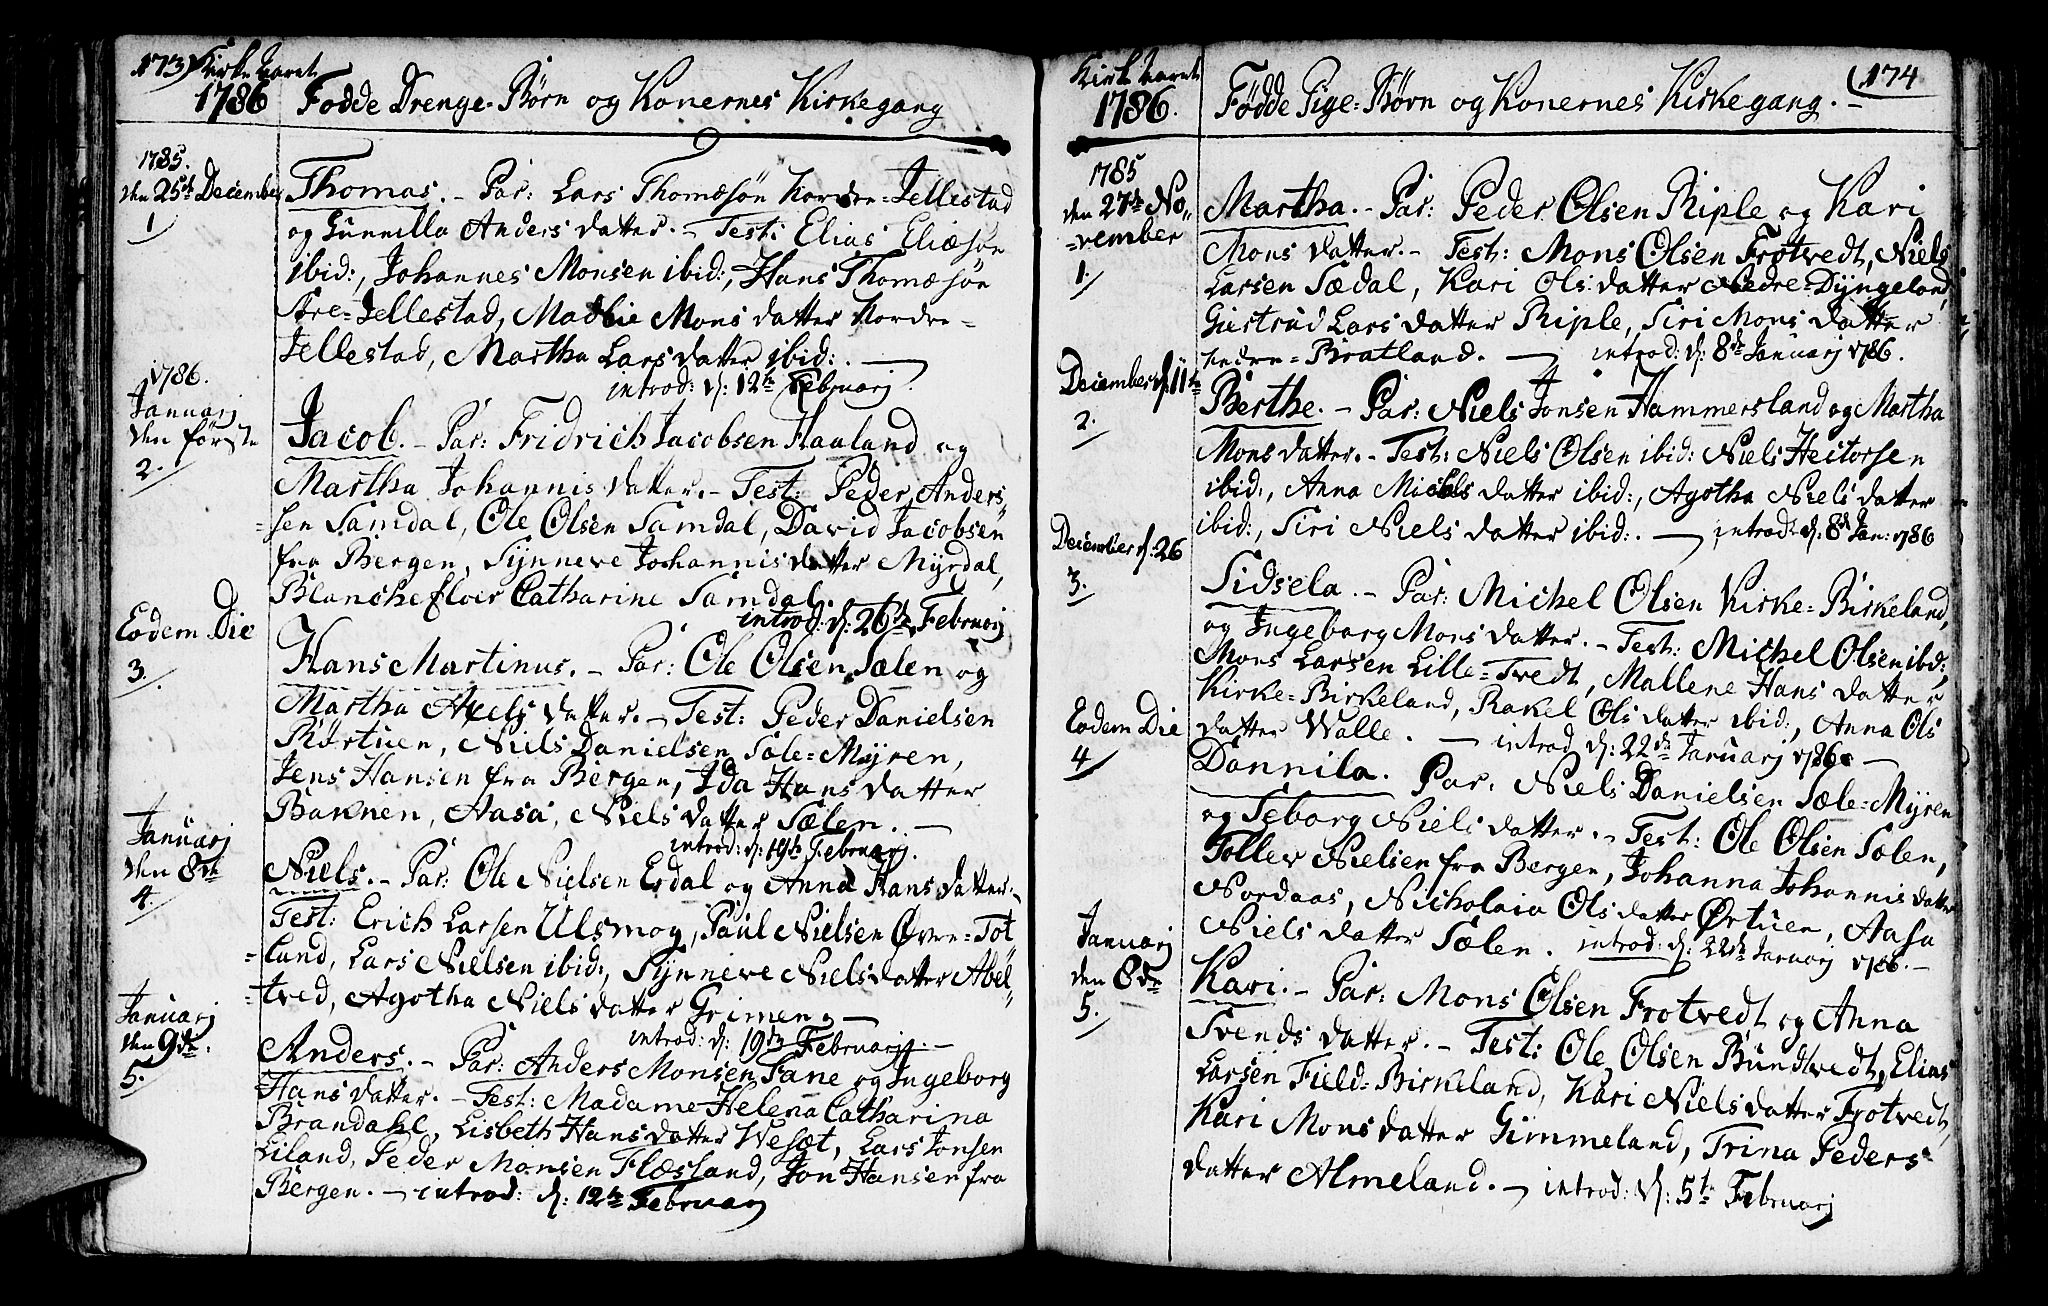 173) Kirke Aaret
1786 Fødde Drenge-Børn og Konernes Kirkegang
1785.
den 25de December
1
Thomas. - Par: Lars Thomæsøn Nordre-Jellestad
og Gunnilla Anders datter. - Test: Elias Eliæsøn
ibid:, Johannes Monsen ibid:, Hans Thomæsøn
Øvre-Jellestad, Madlie Mons datter Nordre-
Jellestad, Martha Lars datter ibid:. —
introd: d: 12te Februarj.
1786.
Januarj
den første
2.
Jacob. - Par: Fridrich Jacobsen Haaland og
Martha Johannis datter. - Test: Peder Anders-
-sen Samdal, Ole Olsen Samdal, David Jacobsen
fra Bergen, Synneve Johannis datter Myrdal,
Blanchefloer Catharine Samdal.
introd: d: 26de Februarj
Eodem Die
3.
Hans Martinus. - Par: Ole Olsen Sælen og
Martha Axels datter. - Test: Peder Danielsen
Ørtuen, Niels Danielsen Sæle-Myren,
Jens Hansen fra Bergen, Ida Hans datter
Bakken, Aasa Niels datter Sælen. —
introd: d: 19de Februarj.
Januarj
den 8de
4.
Niels. - Par: Ole Nielsen Esdal og Anna Hans datter.-
Test: Erich Larsen Ulsmog, Paul Nielsen Øvre-Tot
-land, Lars Nielsen ibid:, Synneve Niels datter Abel-
-tved, Agotha Niels datter Grimen —
introd: d: 19de Februarj. -
Januarj
den 9de.
5.
Anders. - Par: Anders Monsen Fane og Ingeborg
Hans datter. - Test: Madame Helena Catharina
Brandahl, Lisbeth Hans datter Wesæt, Lars Jonsen
Liland, Peder Monsen Flæsland, Jon Hansen fra
Bergen. - introd: d: 12te Februarj
Kirk Aaret
1786. Fødde Pige-Børn og Konernes Kirkegang. - (174
1785
den 27de No-
-vember
1.
Martha. - Par: Peder Olsen Riple og Kari
Mons datter. - Test: Mons Olsen Frotvedt, Niels
Larsen Sædal, Kari Ols datter Nedre-Dyngeland,
Giertrud Lars datter Riple, Siri Mons datter
Indre-Bratland. — introd: d: 8de Januarj 1786.
December d: 11te
2.
Berthe. - Par: Niels Jonsen Hammersland og Martha
Mons datter. - Test: Niels Olsen ibid: Niels Heitorsen
ibid:, Anna Michels datter ibid:, Agotha Niels datter
ibid:, Siri Niels datter ibid:. — introd: d: 8de Jan: 1786
December d: 26
3.
Sidsela. - Par: Michel Olsen Kirke-Birkeland,
og Ingeborg Mons datter. - Test: Michel Olsen ibid:
Mons Larsen Lille-Tvedt, Mallene Hans datter
Kirke-Birkeland, Rakel Ols datter ibid:, Anna Ols
datter Walle. — introd d: 22de Januarj 1786 —
Eodem Die
4
Dannila. Par. Niels Danielsen Sæle-Myren
og Seborg Niels datter. - Test: Ole Olsen Sælen,
Toller Nielsen fra Bergen, Johanna Johannis datter
Nordaas, Nicholaia Ols datter Ørtuen, Aasa
Niels datter Sælen. introd: d: 22de Januarj 1786. -
Januarj
den 8de
5.
Kari. - Par: Mons Olsen Frotvedt og Anna
Svends datter. - Test: Ole Olsen Bundtvedt, Elias
Larsen Field-Birkeland, Kari Niels datter Frotvedt,
Kari Mons datter Gimmeland, Trina Peders-
datter Almeland. - introd: d: 5te Februarj